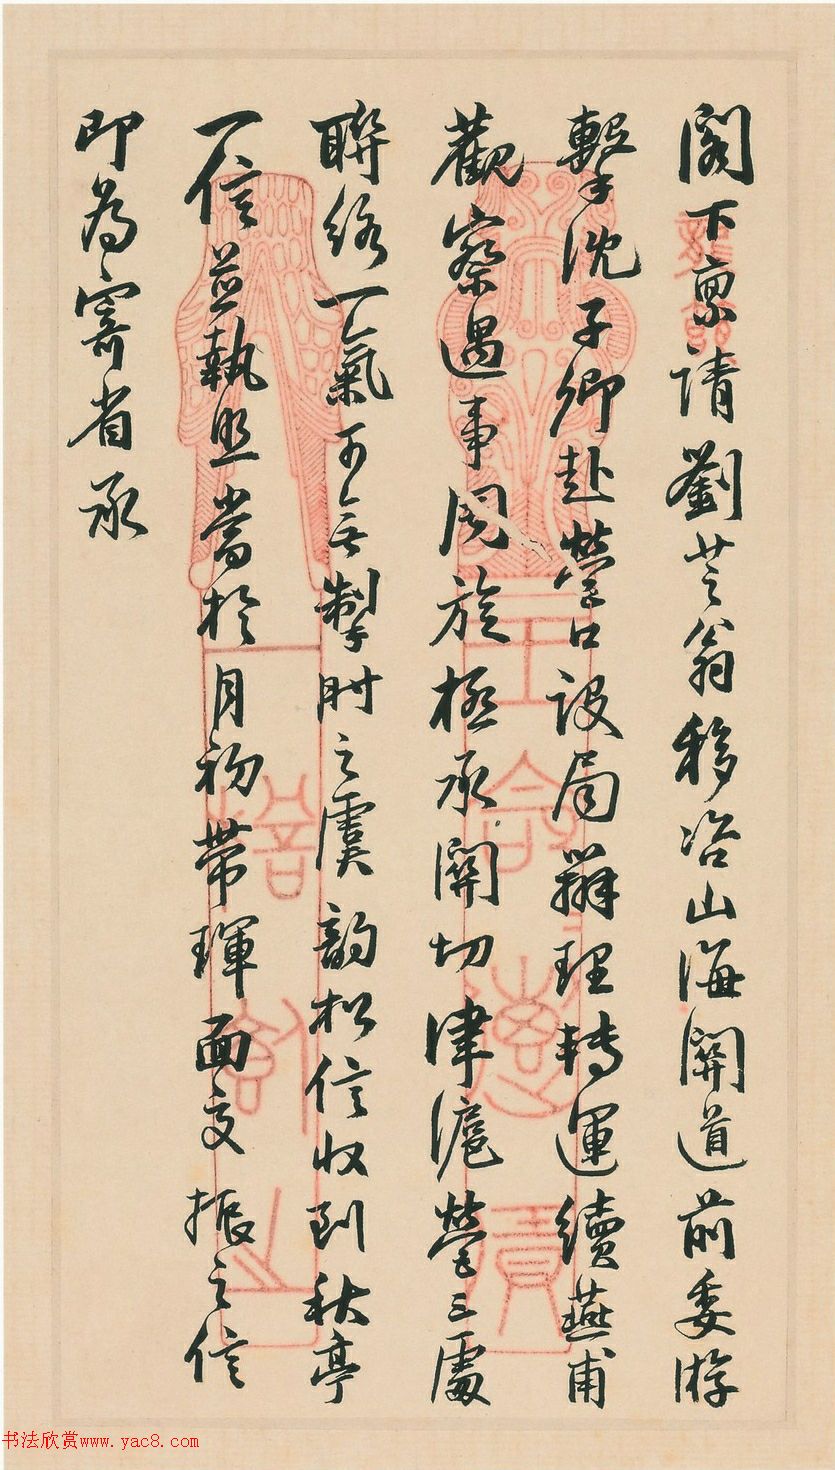 阁下禀请劉芝翁移咨山海關道前委游
擊沈子卿赴營口設局辦理轉運續燕甫
觀察遇事周旋極承關切津滬營三處
聯絡一氣可無掣肘之虞韵松信收到秋亭
一信並執照當於月初帶琿面交振之信
即為寄省承
书法欣赏www.yac8.com